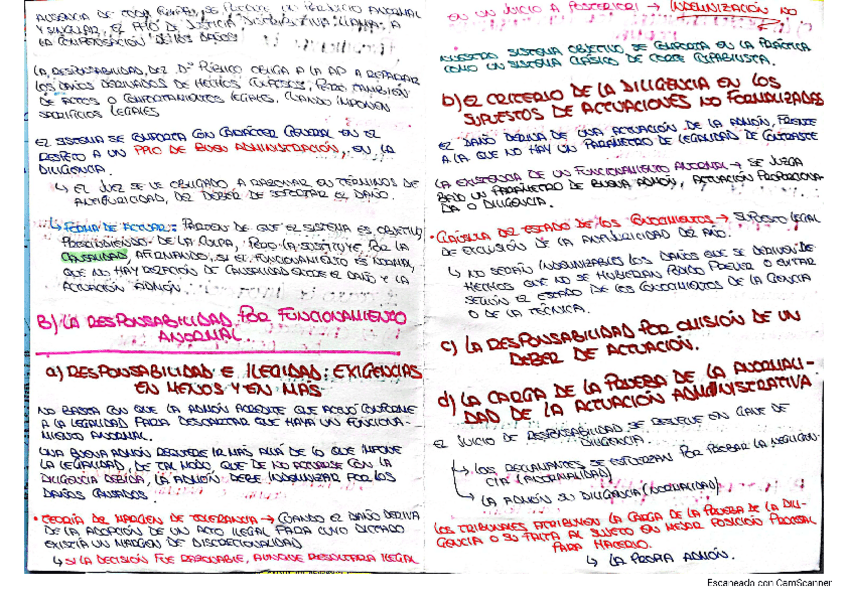 AUSENCIA DE TODA
Y SINGULAR, EL PPIO DE JUSTICIA DISTRIBUTIVA LLAMA A
LA COMPENSACIÓN DE LOS DAÑOS
LA RESPONSABILIDAD DEL Dº PÚBLICO OBLIGA A LA AP A REPARAR
LOS DAÑOS DERIVADOS DE HECHOS CULPOSOS, PERO TAMBIÉN
DE ACTOS O COMPORTAMIENTOS LEGALES, CUANDO IMPONEN
SACRIFICIOS LEGALES
EL SISTEMA SE COMPORTA CON CARÁCTER GENERAL EN EL
RESPETO A UN PPIO DE BUEN ADMINISTRACIÓN, EN LA
DILIGENCIA.
↳ EL JUEZ SE VE OBLIGADO A RAZONAR EN TÉRMINOS DE
ANTIJURICIDAD, DEL DEBER DE SOPORTAR EL DAÑO.
↳ FORMA DE ACTUAR: PARTEN DE QUE EL SISTEMA ES OBJETIVO,
PRESCINDIENDO DE LA CULPA, PERO LA SUSTITUYE POR LA
CAUSALIDAD, AFIRMANDO, SI EL FUNCIONAMIENTO ES NORMAL,
QUE NO HAY RELACIÓN DE CAUSALIDAD ENTRE EL DAÑO Y LA
ACTUACIÓN ADMÓN
B) LA RESPONSABILIDAD POR FUNCIONAMIENTO
ANORMAL.
a) RESPONSABILIDAD E ILEGALIDAD: EXIGENCIAS
EN MENOS Y EN MÁS
NO BASTA CON QUE LA ADMÓN ACREDITE QUE ACTUÓ CONFORME
A LA LEGALIDAD PARA DESCARTAR QUE HAYA UN FUNCIONA-
MIENTO ANORMAL.
UNA BUENA ADMÓN REQUIERE IR MÁS ALLÁ DE LO QUE IMPONE
LA LEGALIDAD, DE TAL MODO, QUE DE NO ACTUARSE CON LA
DILIGENCIA DEBIDA, LA ADMÓN DEBE INDEMNIZAR POR LOS
DAÑOS CAUSADOS.
• TEORÍA DEL MARGEN DE TOLERANCIA → CUANDO EL DAÑO DERIVA
DE LA ADOPCIÓN DE UN ACTO ILEGAL PARA CUYO DICTADO
EXISTÍA UN MARGEN DE DISCRECIONALIDAD
↳ SI LA DECISIÓN FUE RAZONABLE, AUNQUE RESULTARA ILEGAL
EN UN JUICIO A POSTERIORI → INDEMNIZACIÓN NO
NUESTRO SISTEMA OBJETIVO, SE COMPORTA EN LA PRÁCTICA
COMO UN SISTEMA CLÁSICO DE CORTE CULPABILISTA.
b) EL CRITERIO DE LA DILIGENCIA EN LOS
SUPUESTOS DE ACTUACIONES NO FORMALIZADAS
EL DAÑO DERIVA DE UNA ACTUACIÓN DE LA ADMÓN, FRENTE
A LA QUE NO HAY UN PARÁMETRO DE LEGALIDAD DE CONTRASTE
LA EXISTENCIA DE UN FUNCIONAMIENTO ANORMAL → SE JUZGA
BAJO UN PARÁMETRO DE BUENA ADMÓN, ACTUACIÓN PROPORCIONA-
DA O DILIGENCIA.
• CLÁUSULA DEL ESTADO DE LOS CONOCIMIENTOS → SUPUESTO LEGAL
DE EXCLUSIÓN DE LA ANTIJURICIDAD DEL DAÑO.
↳ NO SERÁN INDEMNIZABLES LOS DAÑOS QUE SE DERIVEN DE
HECHOS QUE NO SE HUBIERAN PODIDO PREVER O EVITAR
SEGÚN EL ESTADO DE LOS CONOCIMIENTOS DE LA CIENCIA
O DE LA TÉCNICA.
c) LA RESPONSABILIDAD POR OMISIÓN DE UN
DEBER DE ACTUACIÓN.
d) LA CARGA DE LA PRUEBA DE LA ANORMALI-
DAD DE LA ACTUACIÓN ADMINISTRATIVA
EL JUICIO DE RESPONSABILIDAD SE RESUELVE EN CLAVE DE
DILIGENCIA.
↳ LOS RECLAMANTES SE ESFUERZAN POR PROBAR LA NEGLIGEN-
CIA (ANORMALIDAD)
↳ LA ADMÓN SU DILIGENCIA (NORMALIDAD)
LOS TRIBUNALES ATRIBUYEN LA CARGA DE LA PRUEBA DE LA DILI-
GENCIA O SU FALTA AL SUJETO EN MEJOR POSICIÓN PROCESAL
PARA HACERLO.
↳ LA PROPIA ADMÓN.
Escaneado con CamScanner